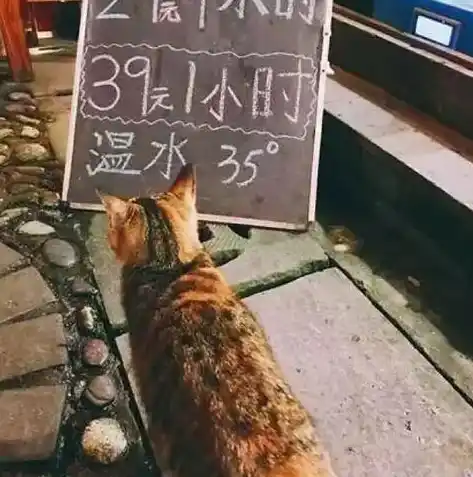 2 元1小时
39元1小时
温水 35°